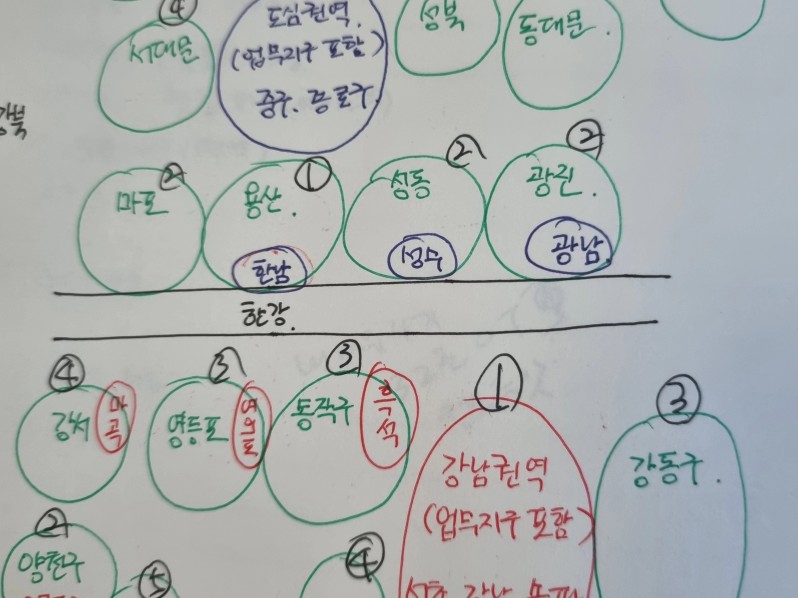 ④
서대문
도심권역.
(업무지구 포함)
중구. 종로구.
성북
동대문.
강북
②
마포
①
용산.
한남
②
성동
성수
②
광진.
광남
한강.
④
강서
마곡
③
영등포
여의도
③
동작구
흑석
①
강남권역
(업무지구 포함)
서초 강남 송파
③
강동구.
②
양천구
⑤
④